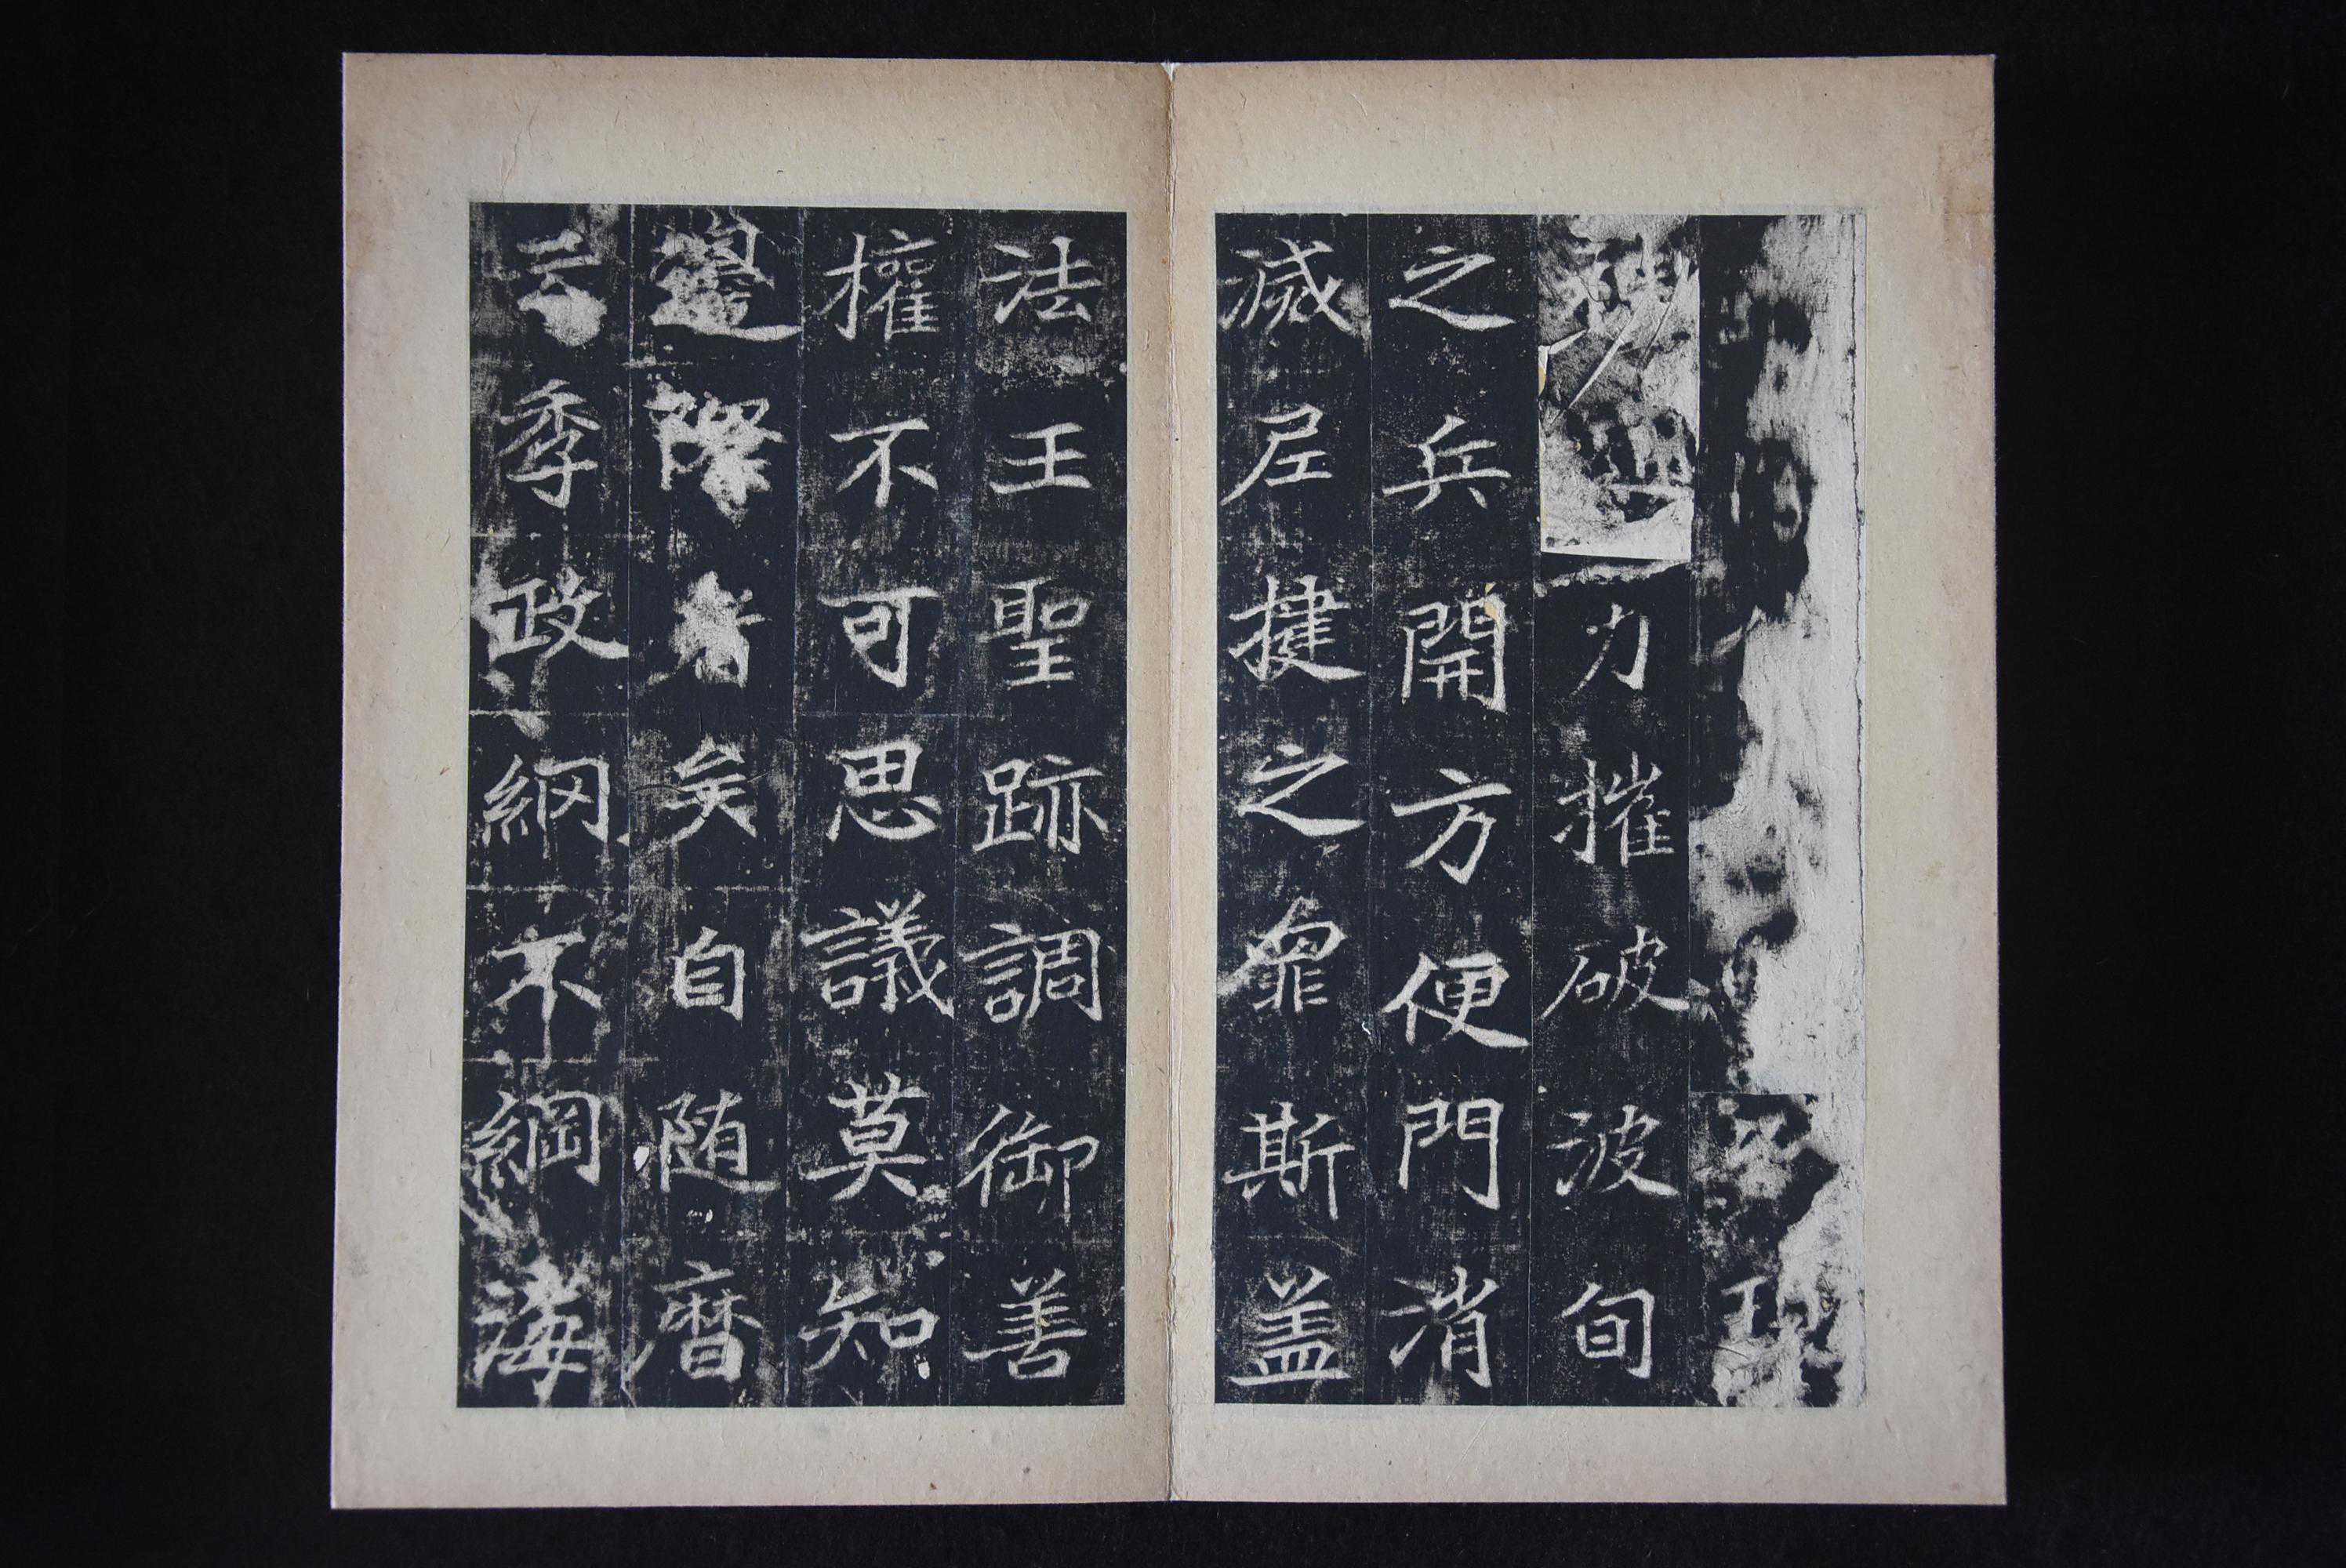 王
力摧破波旬
之兵開方便門消
滅尼揵之罪斯盖
法王聖跡調御善
權不可思議莫知
邊際者矣自随曆
云季政網不綱海